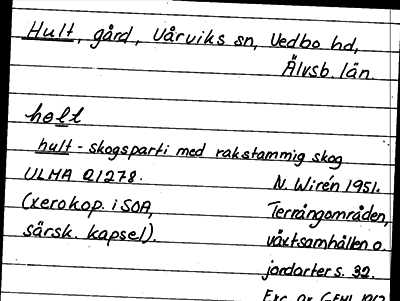 Hult, gård, Vårviks sn, Vedbo hd,
Älvsb. län.
holt
hult - skogsparti med rakstammig skog
ULMA 21278. N. Wirén 1951.
(xerokop. i SOA, Terrängområden,
särsk. kapsel). växtsamhällen o.
jordarter s. 32.
Exc. av